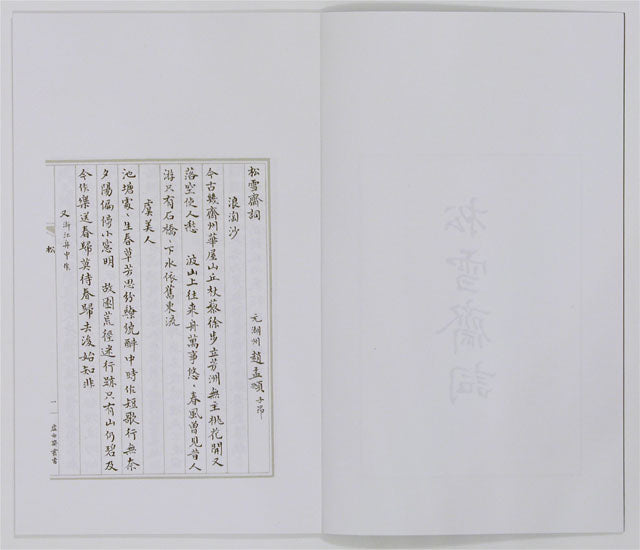 松雪齋詞 元湖州 趙孟頫 子昂
浪淘沙
今古幾齊州華屋山丘杖藜徐步立芳洲無主桃花開又
落空使人愁 波上往來舟萬事悠、春風曾見昔人
游只有石橋、下水依舊東流
虞美人
池塘處、生春草芳思紛繚繞醉中時作短歌行無奈
夕陽偏傍小窻明 故園荒徑迷行跡只有山仍碧及
今作樂送春歸莫待春歸去後始知非
又 浙江舟中作
松
一
松雪齋詞